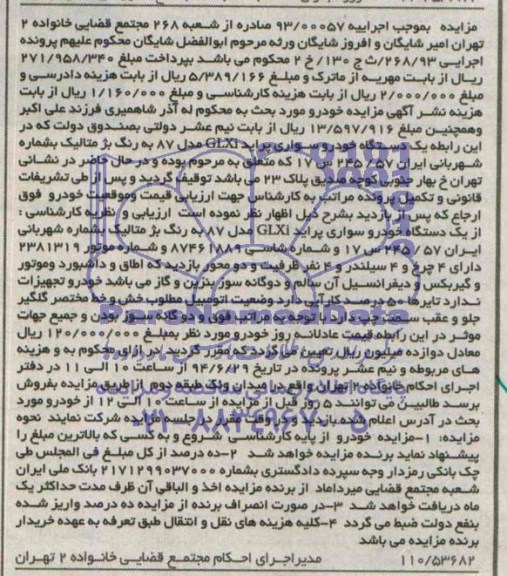 مزایده بموجب اجراییه ۹۳/۰۰۰۵۷ صادره از شعبه ۲۶۸ مجتمع قضایی خانواده ۲
تهران امیر شایگان و افروز شایگان ورثه مرحوم ابوالفضل شایگان محکوم علیهم پرونده
اجرایی ۲۶۸/۹۳/ث ج ۱۳۰/ خ ۲ محکوم می باشد بپرداخت مبلغ ۲۷۱/۹۵۸/۳۴۰
ریال از بابت مهریه از ماترک و مبلغ ۵/۳۸۹/۱۶۶ ریال از بابت هزینه دادرسی و
مبلغ ۲/۰۰۰/۰۰۰ ریال از بابت هزینه کارشناسی و مبلغ ۱/۱۶۰/۰۰۰ ریال از بابت
هزینه نشر آگهی مزایده خودرو مورد بحث به محکوم له آذر شاهمیری فرزند علی اکبر
وهمچنین مبلغ ۱۳/۵۹۷/۹۱۶ ریال از بابت نیم عشر دولتی بصندوق دولت که در
این رابطه یک دستگاه خودرو سواری پراید GLXi مدل ۸۷ به رنگ بژ متالیک بشماره
شهربانی ایران ۵۷/ ۲۴۵ س ۱۷ که متعلق به مرحوم بوده و در حال حاضر در نشانی
تهران خ بهار جنوبی کوچه صدیق پلاک ۲۳ می باشد توقیف گردید و پس از طی تشریفات
قانونی و تکمیل پرونده مراتب به کارشناس جهت ارزیابی قیمت وموقعیت خودرو فوق
ارجاع که پس از بازدید بشرح ذیل اظهار نظر نموده است ارزیابی و نظریه کارشناسی :
از یک دستگاه خودرو سواری پراید GLXi مدل ۸۷ به رنگ بژ متالیک بشماره شهربانی
ایران ۵۷/ ۲۴۵ س ۱۷ و شماره شاسی ۸۷۴۶۱۸۸۹ و شماره موتور ۲۳۸۱۳۱۹
دارای ۴ چرخ و ۴ سیلندر و ۴ نفر ظرفیت و دو محور بازدید که اطاق و داشبورد وموتور
و گیربکس و دیفرانسیل آن سالم و دوگانه سوز بنزین و گاز می باشد خودرو تجهیزات
ندارد تایرها ۵۰ درصد کارآیی دارد وضعیت اتومبیل مطلوب خش و خط مختصر گلگیر
جلو و عقب سمت چپ دارد با توجه به مراتب فوق و دو گانه سوز بودن و جمیع جهات
موثر در این رابطه قیمت عادلانه روز خودرو مورد نظر بمبلغ ۱۲۰/۰۰۰/۰۰۰ ریال
معادل دوازده میلیون ریال تعیین می گردد که مقرر گردید در ازای محکوم به و هزینه
های مربوطه و نیم عشر پرونده در تاریخ ۹۴/۶/۲۹ از ساعت ۱۰ الی ۱۱ در دفتر
اجرای احکام خانواده ۲ تهران واقع در میدان ونک طبقه دوم از طریق مزایده بفروش
برسد طالبین می توانند ۵ روز قبل از مزایده از ساعت ۱۰ الی ۱۲ از خودرو مورد
بحث در آدرس اعلام شده بازدید و در وقت مقرر در جلسه مزایده شرکت نمایند نحوه
مزایده: ۱-مزایده خودرو از پایه کارشناسی شروع و به کسی که بالاترین مبلغ را
پیشنهاد نماید برنده مزایده خواهد شد ۲-ده درصد از کل مبلغ فی المجلس طی
چک بانکی رمزدار وجه سپرده دادگستری بشماره ۲۱۷۱۲۹۹۰۳۷۰۰۰ بانک ملی ایران
شعبه مجتمع قضایی میرداماد از برنده مزایده اخذ و الباقی آن ظرف مدت حداکثر یک
ماه دریافت خواهد شد ۳-در صورت انصراف برنده از مزایده ده درصد واریز شده
بنفع دولت ضبط می گردد ۴-کلیه هزینه های نقل و انتقال طبق تعرفه به عهده خریدار
برنده مزایده می باشد
۱۱۰/۵۳۶۸۲ مدیراجرای احکام مجتمع قضایی خانواده ۲ تهران